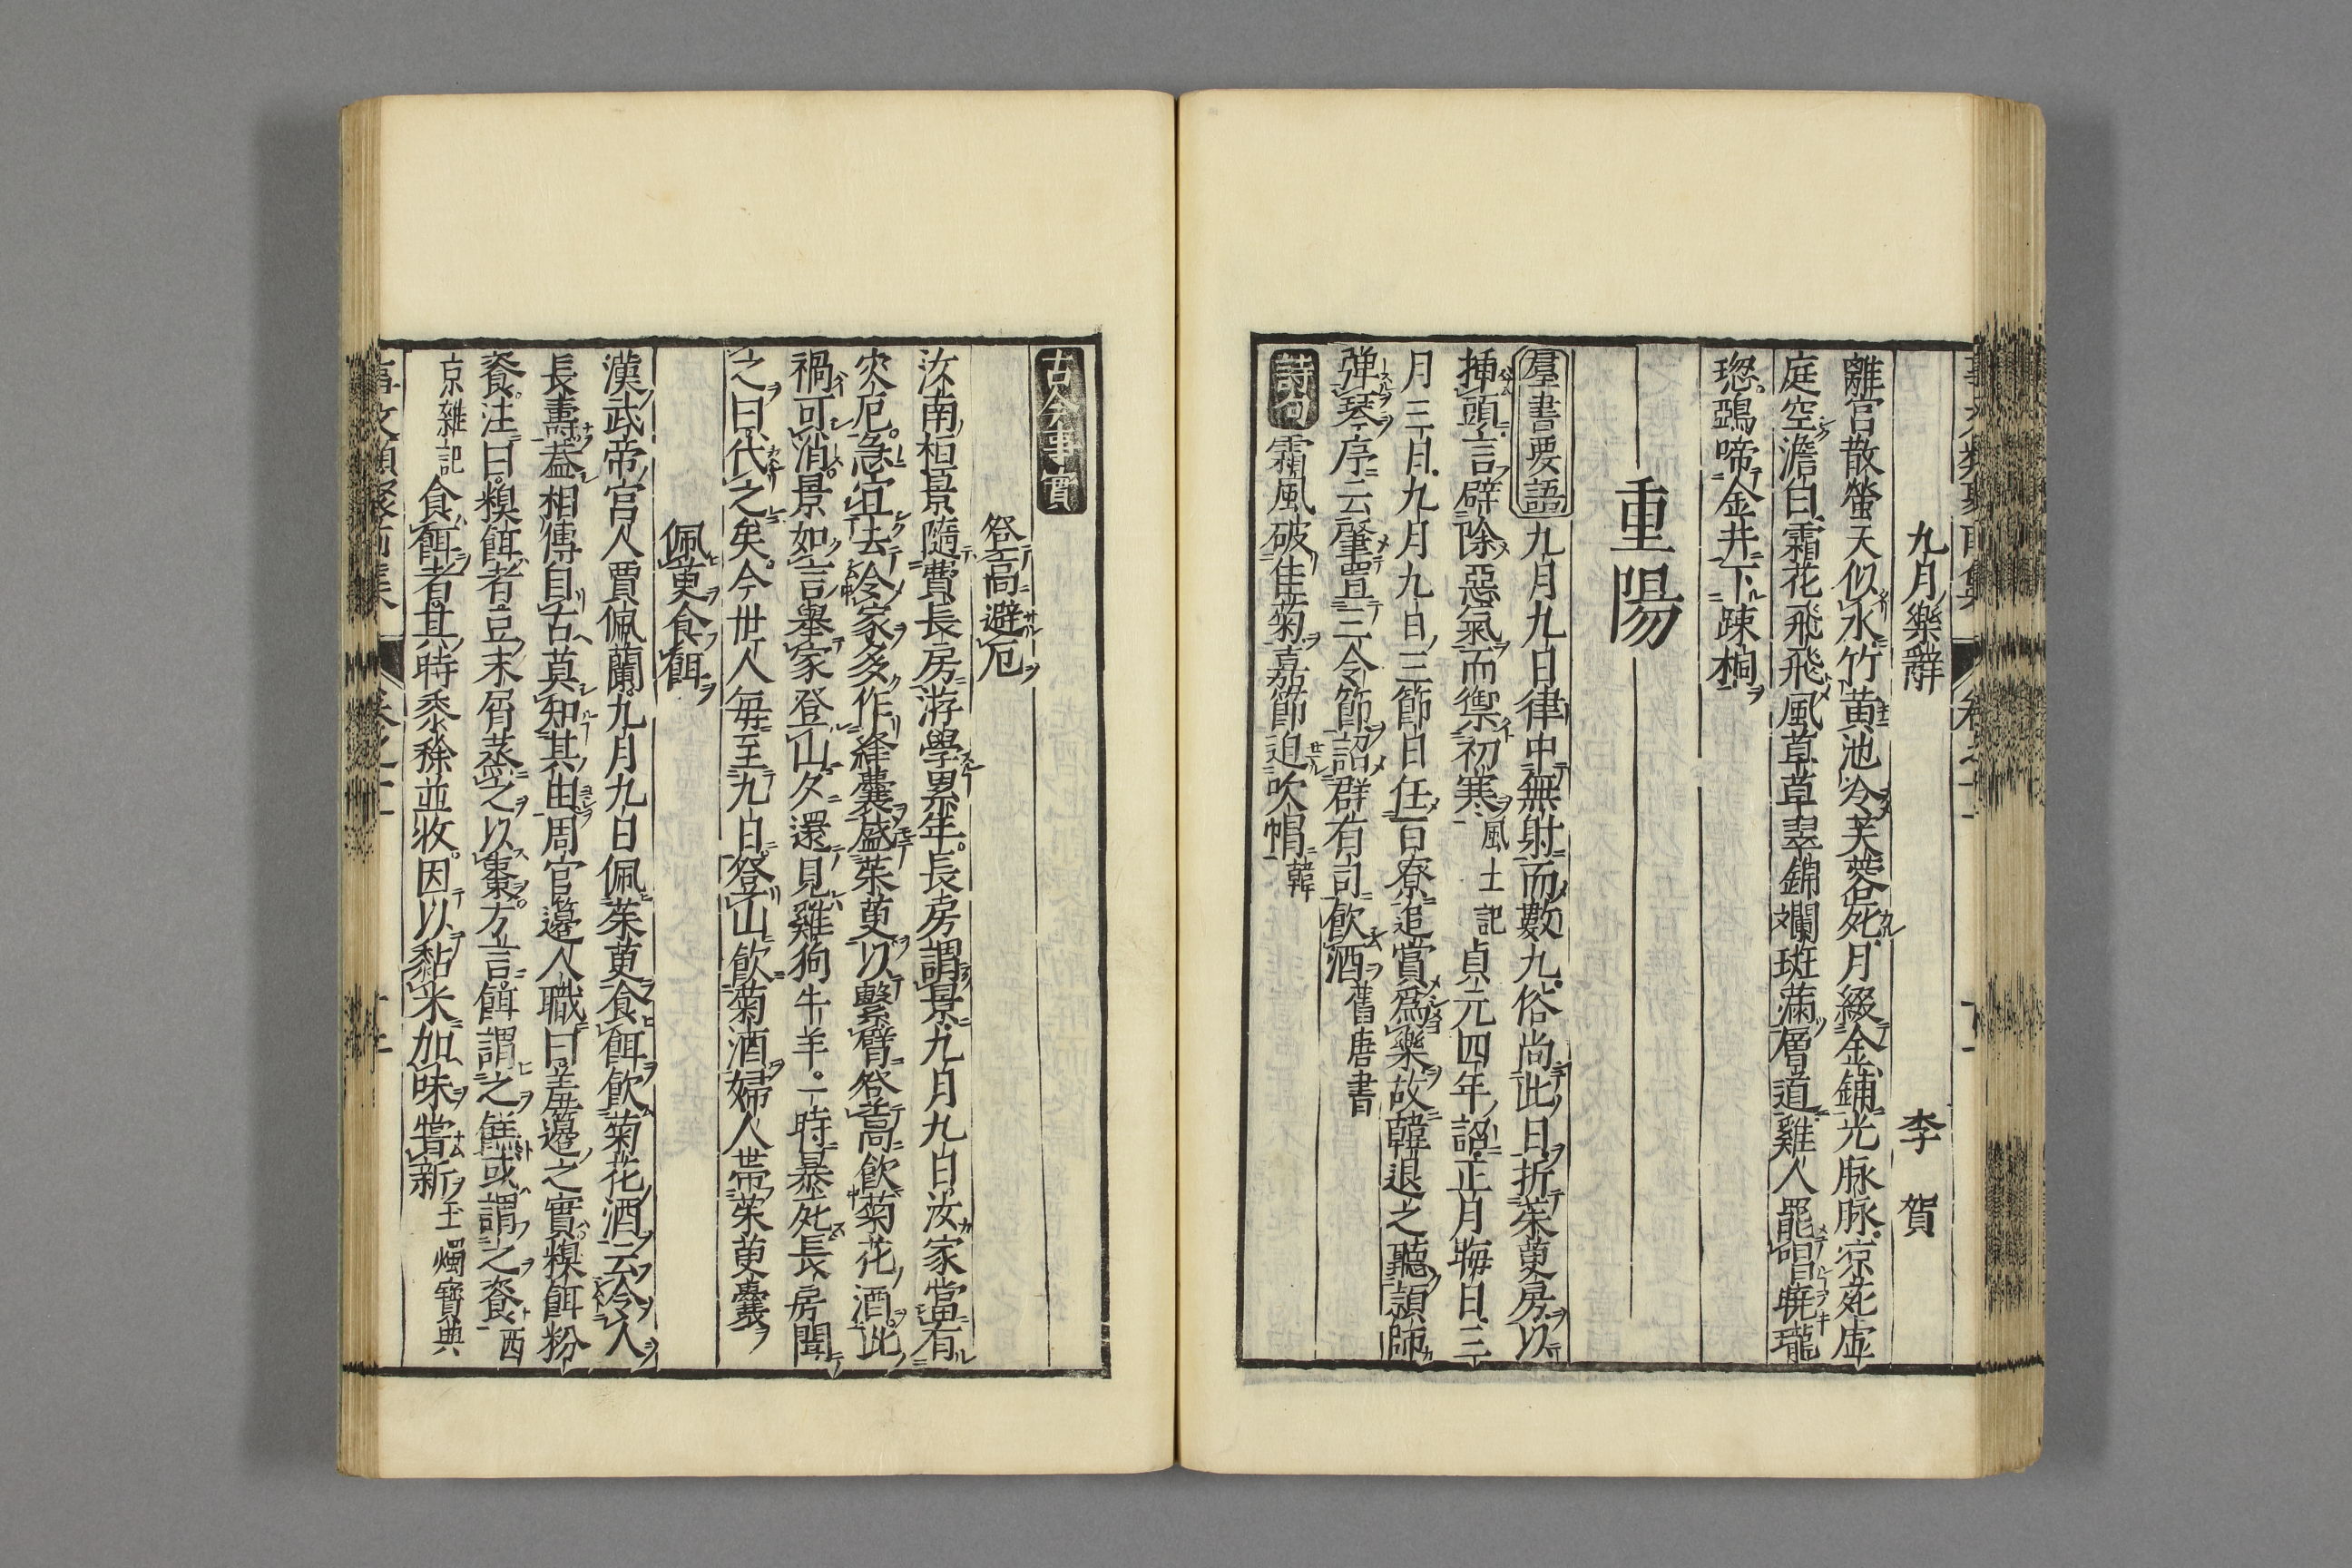 九月樂辭 李賀
離宮散螢天似水竹黃池冷芙蓉死月綴金鋪光脉脉凉苑虛
庭空澹白霜花飛飛風草草翠錦斕斑滿層道雞人罷唱曉瓏
璁鵶啼金井下疎桐
重陽
羣書要語 九月九日律中無射而數九俗尚此日折茱萸房以
挿頭言辟除惡氣而禦初寒 風土記 貞元四年詔正月晦日三
月三日九月九日三節日任百寮追賞爲樂故韓退之聽頴師
弹琴序云肇置三令節詔群有司飲酒 舊唐書
詩句 霜風破佳菊嘉節迫吹帽 韓
古今事實
登高避厄
汝南桓景隨費長房游學累年。長房謂景九月九日汝家當有
灾厄。急宜去令家人各作絳囊盛茱萸以繫臂登高飲菊花酒此
禍可消。景如言舉家登山夕還見雞狗牛羊。一時暴死長房聞
之曰代之矣。今世人每至九日。登山飲菊酒婦人帶茱萸囊
佩萸食餌
漢武帝宮人賈佩蘭九月九日佩茱萸食餌飲菊花酒云令人
長壽蓋相傳自古莫知其由周官籩人職曰。羞籩之實糗餌粉
餈。注曰。糗餌者豆末屑蒸之以棗。方言餌謂之餻或謂之餈 西
京雜記 食餌者其時黍稌並收。因以黏米加味嘗新 玉燭寶典
事文類聚前集 卷之十一